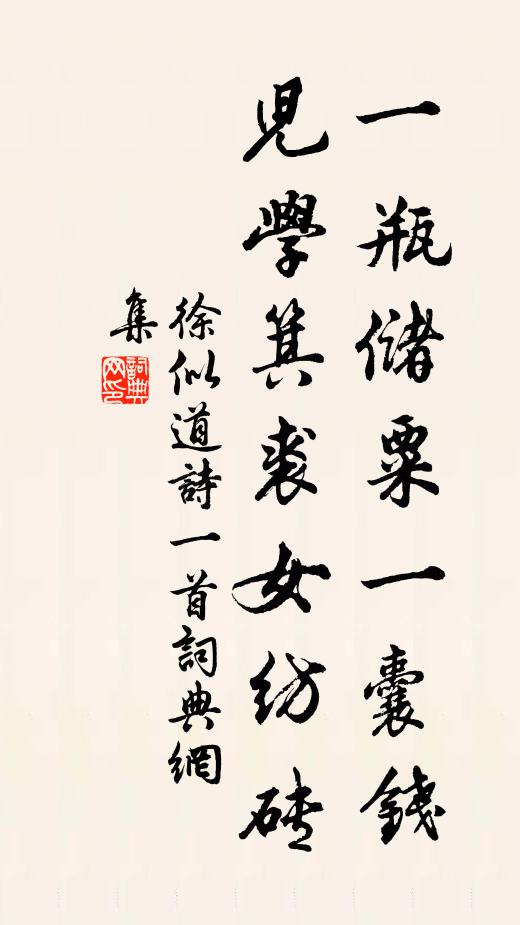 一瓶儲粟一囊錢
兒學箕裘女紡磚
徐似道詩一首詞典網
集
詞典
网印